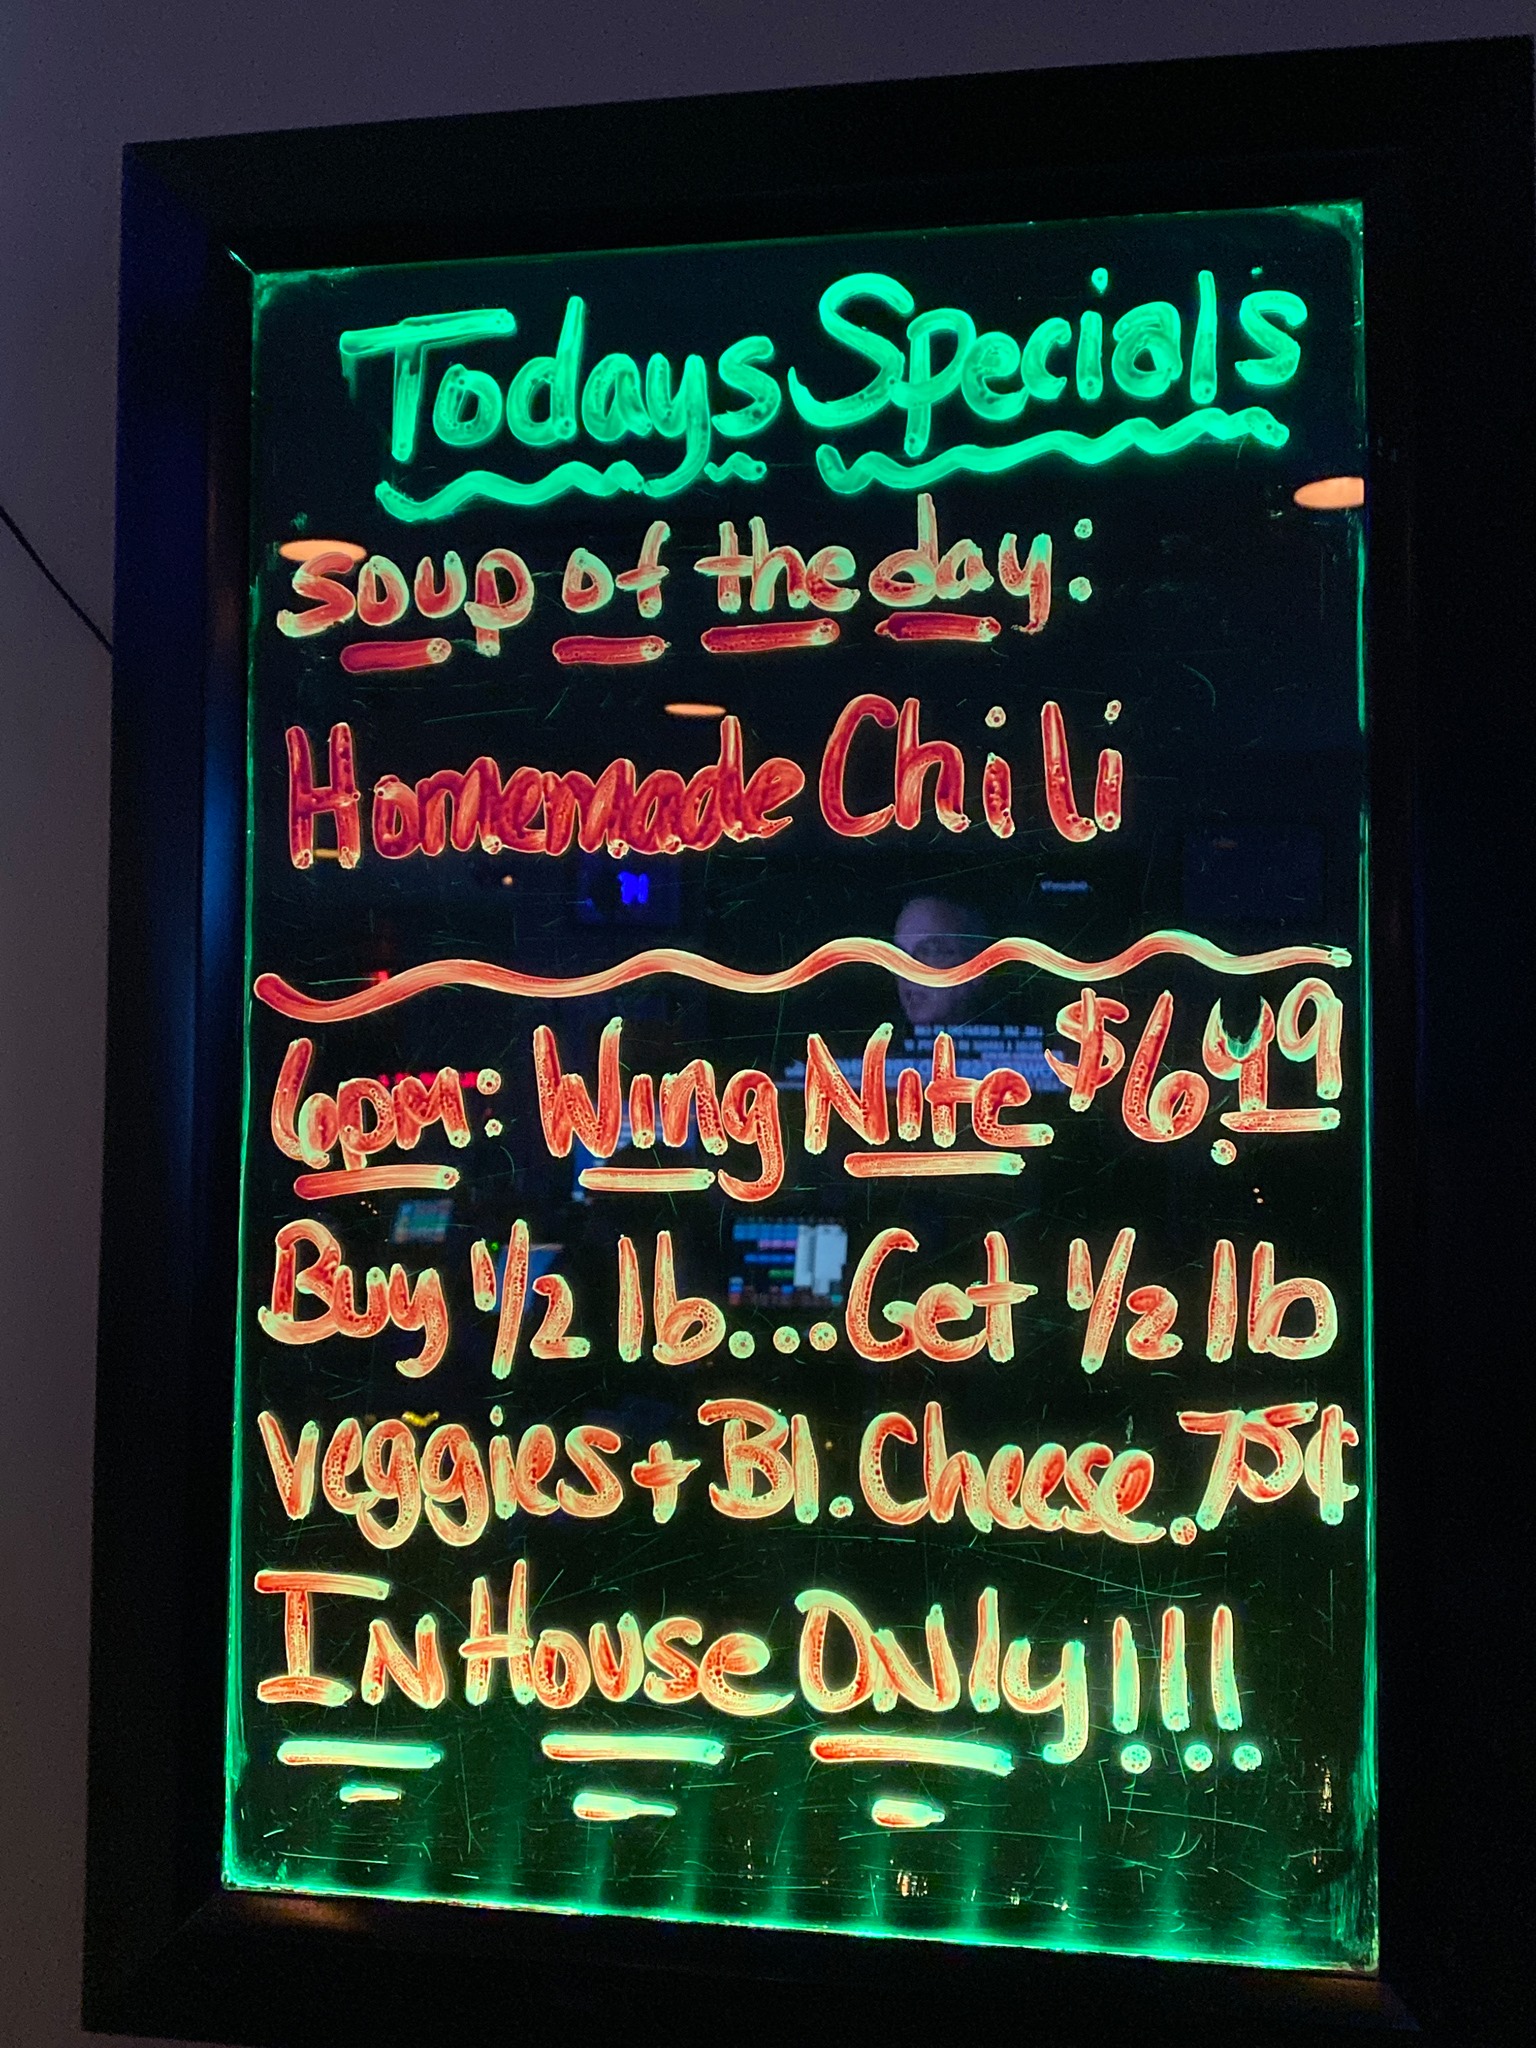 Todays Specials
Soup of the day:
Homemade Chili
6pm: Wing Nite $6.49
Buy 1/2 lb... Get 1/2 lb
veggies + Bl. Cheese .75¢
In House Only!!!